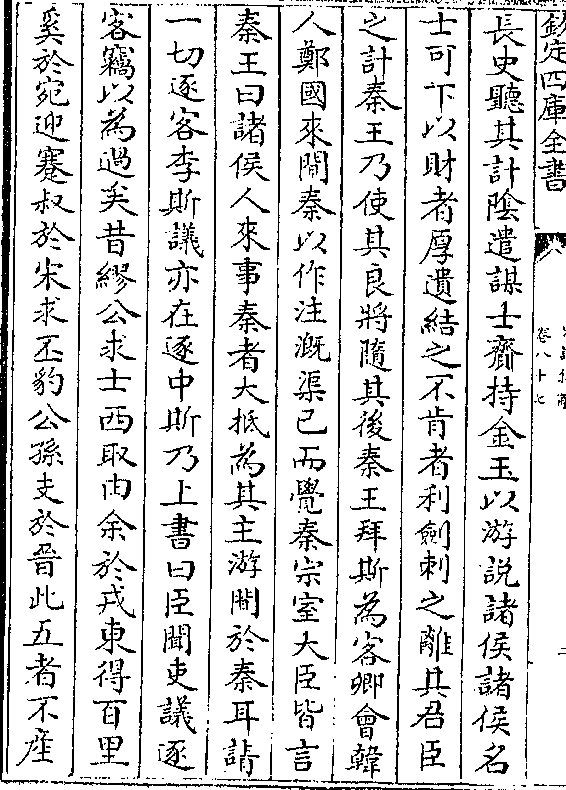 欽定四庫全書
卷八十七
長史聽其計陰遣謀士齎持金玉以游説諸侯諸侯名
士可下以財者厚遺結之不肯者利劍刺之離其君臣
之計秦王乃使其良將隨其後秦王拜斯為客卿會韓
人鄭國來閒秦以作注溉渠已而覺秦宗室大臣皆言
秦王曰諸侯人來事秦者大抵為其主游閒於秦耳請
一切逐客李斯議亦在逐中斯乃上書曰臣聞吏議逐
客竊以為過矣昔繆公求士西取由余於戎東得百里
奚於宛迎蹇叔於宋求丕豹公孫支於晉此五者不産